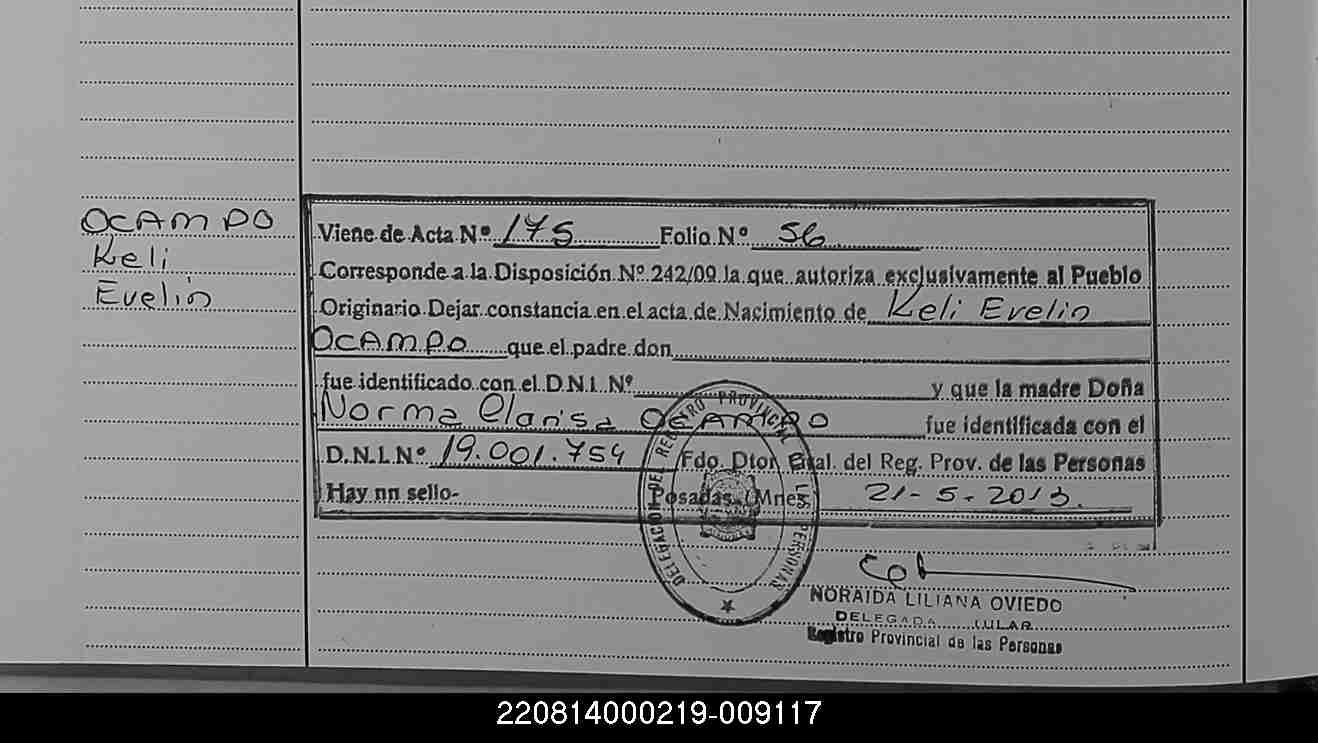 OCAMPO
Keli
Evelin
Viene de Acta Nº 175 Folio Nº 56
Corresponde a la Disposición Nº 242/09 la que autoriza exclusivamente al Pueblo
Originario Dejar constancia en el acta de Nacimiento de Keli Evelin
OCAMPO que el padre don
fue identificado con el D.N.I. Nº y que la madre Doña
Norma Clarisa OCAMPO fue identificada con el
D.N.I. Nº 19.001.754 Fdo. Dtor. Gral. del Reg. Prov. de las Personas
Hay nn sello- Posadas (Mnes) 21-5-2013.
DELEGACION DEL REGISTRO PROVINCIAL DE LAS PERSONAS
NORAIDA LILIANA OVIEDO
DELEGADA
Registro Provincial de las Personas
220814000219-009117